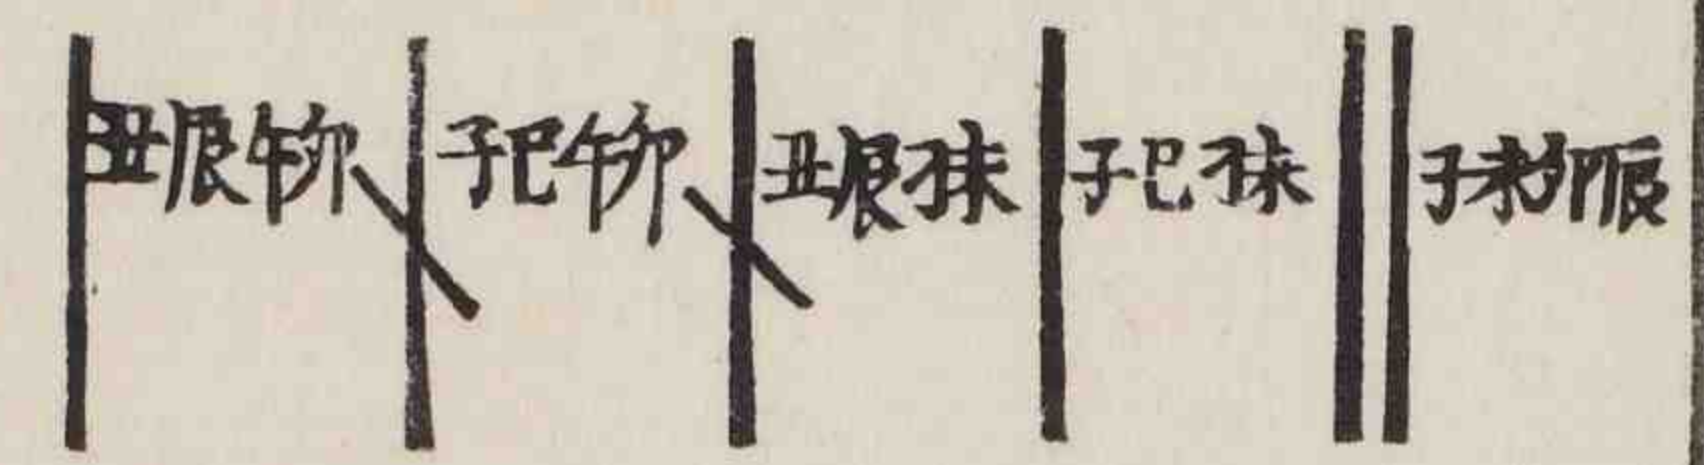 丑辰午卯 子巳午卯 丑辰未 子巳未 子未卯辰